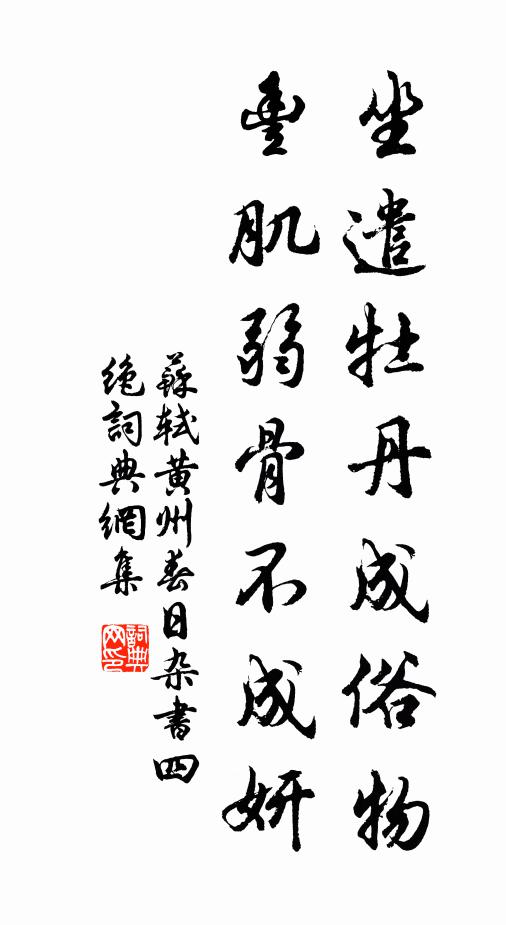 坐遣牡丹成俗物
豐肌弱骨不成妍
蘇軾黄州春日杂書四
絶詞典網集
詞典网印